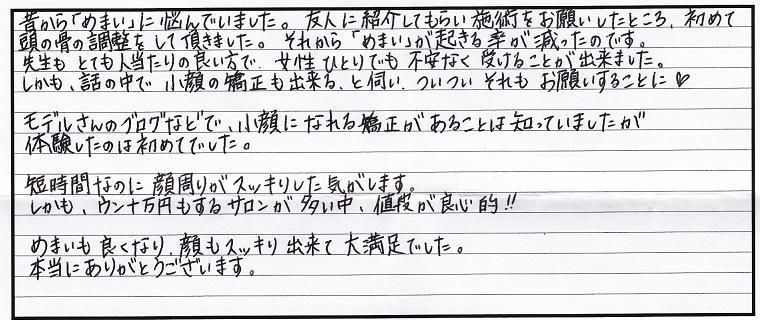 昔から「めまい」に悩んでいました。友人に紹介してもらい施術をお願いしたところ、初めて
頭の骨の調整をして頂きました。それから「めまい」が起きる率が減ったのです。
先生もとても人当たりの良い方で、女性ひとりでも不安なく受けることが出来ました。
しかも、話の中で小顔の矯正も出来る、と伺い、ついついそれもお願いすることに♡
モデルさんのブログなどで、小顔になれる矯正があることは知っていましたが
体験したのは初めてでした。
短時間なのに顔周りがスッキリした気がします。
しかも、ウン十万円もするサロンが多い中、値段が良心的!!
めまいも良くなり、顔もスッキリ出来て大満足でした。
本当にありがとうございます。